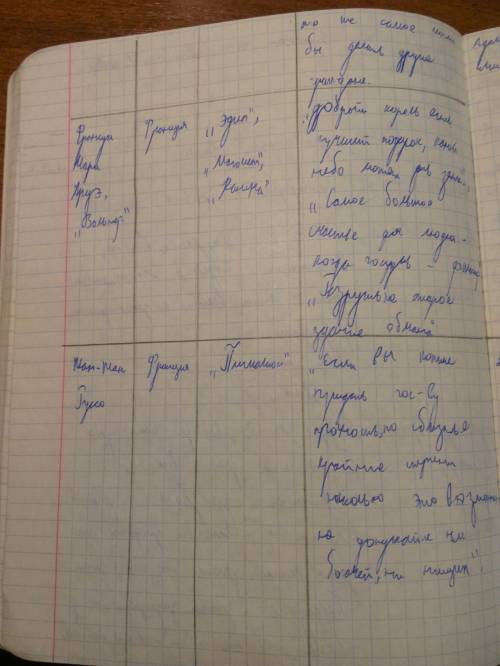 то же самое
бы делали другие
граждане.
Франсуа
Мари
Аруэ,
„Вольтер"
Франция
„Эдип",
„Магомет",
„Доброта короля есть
лучший подарок, какой
небо может дать земле".
„Самое большое
счастье для людей -
когда государь - философ"
„Разрушьте старое
здание обмана
Жан-Жак
Руссо
Франция
„Пигмалион"
„Если вы хотите
придать гос-ву
прочность, то сблизьте
крайние ступени
насколько это возможно
не допускайте ни
богачей, ни нищих".